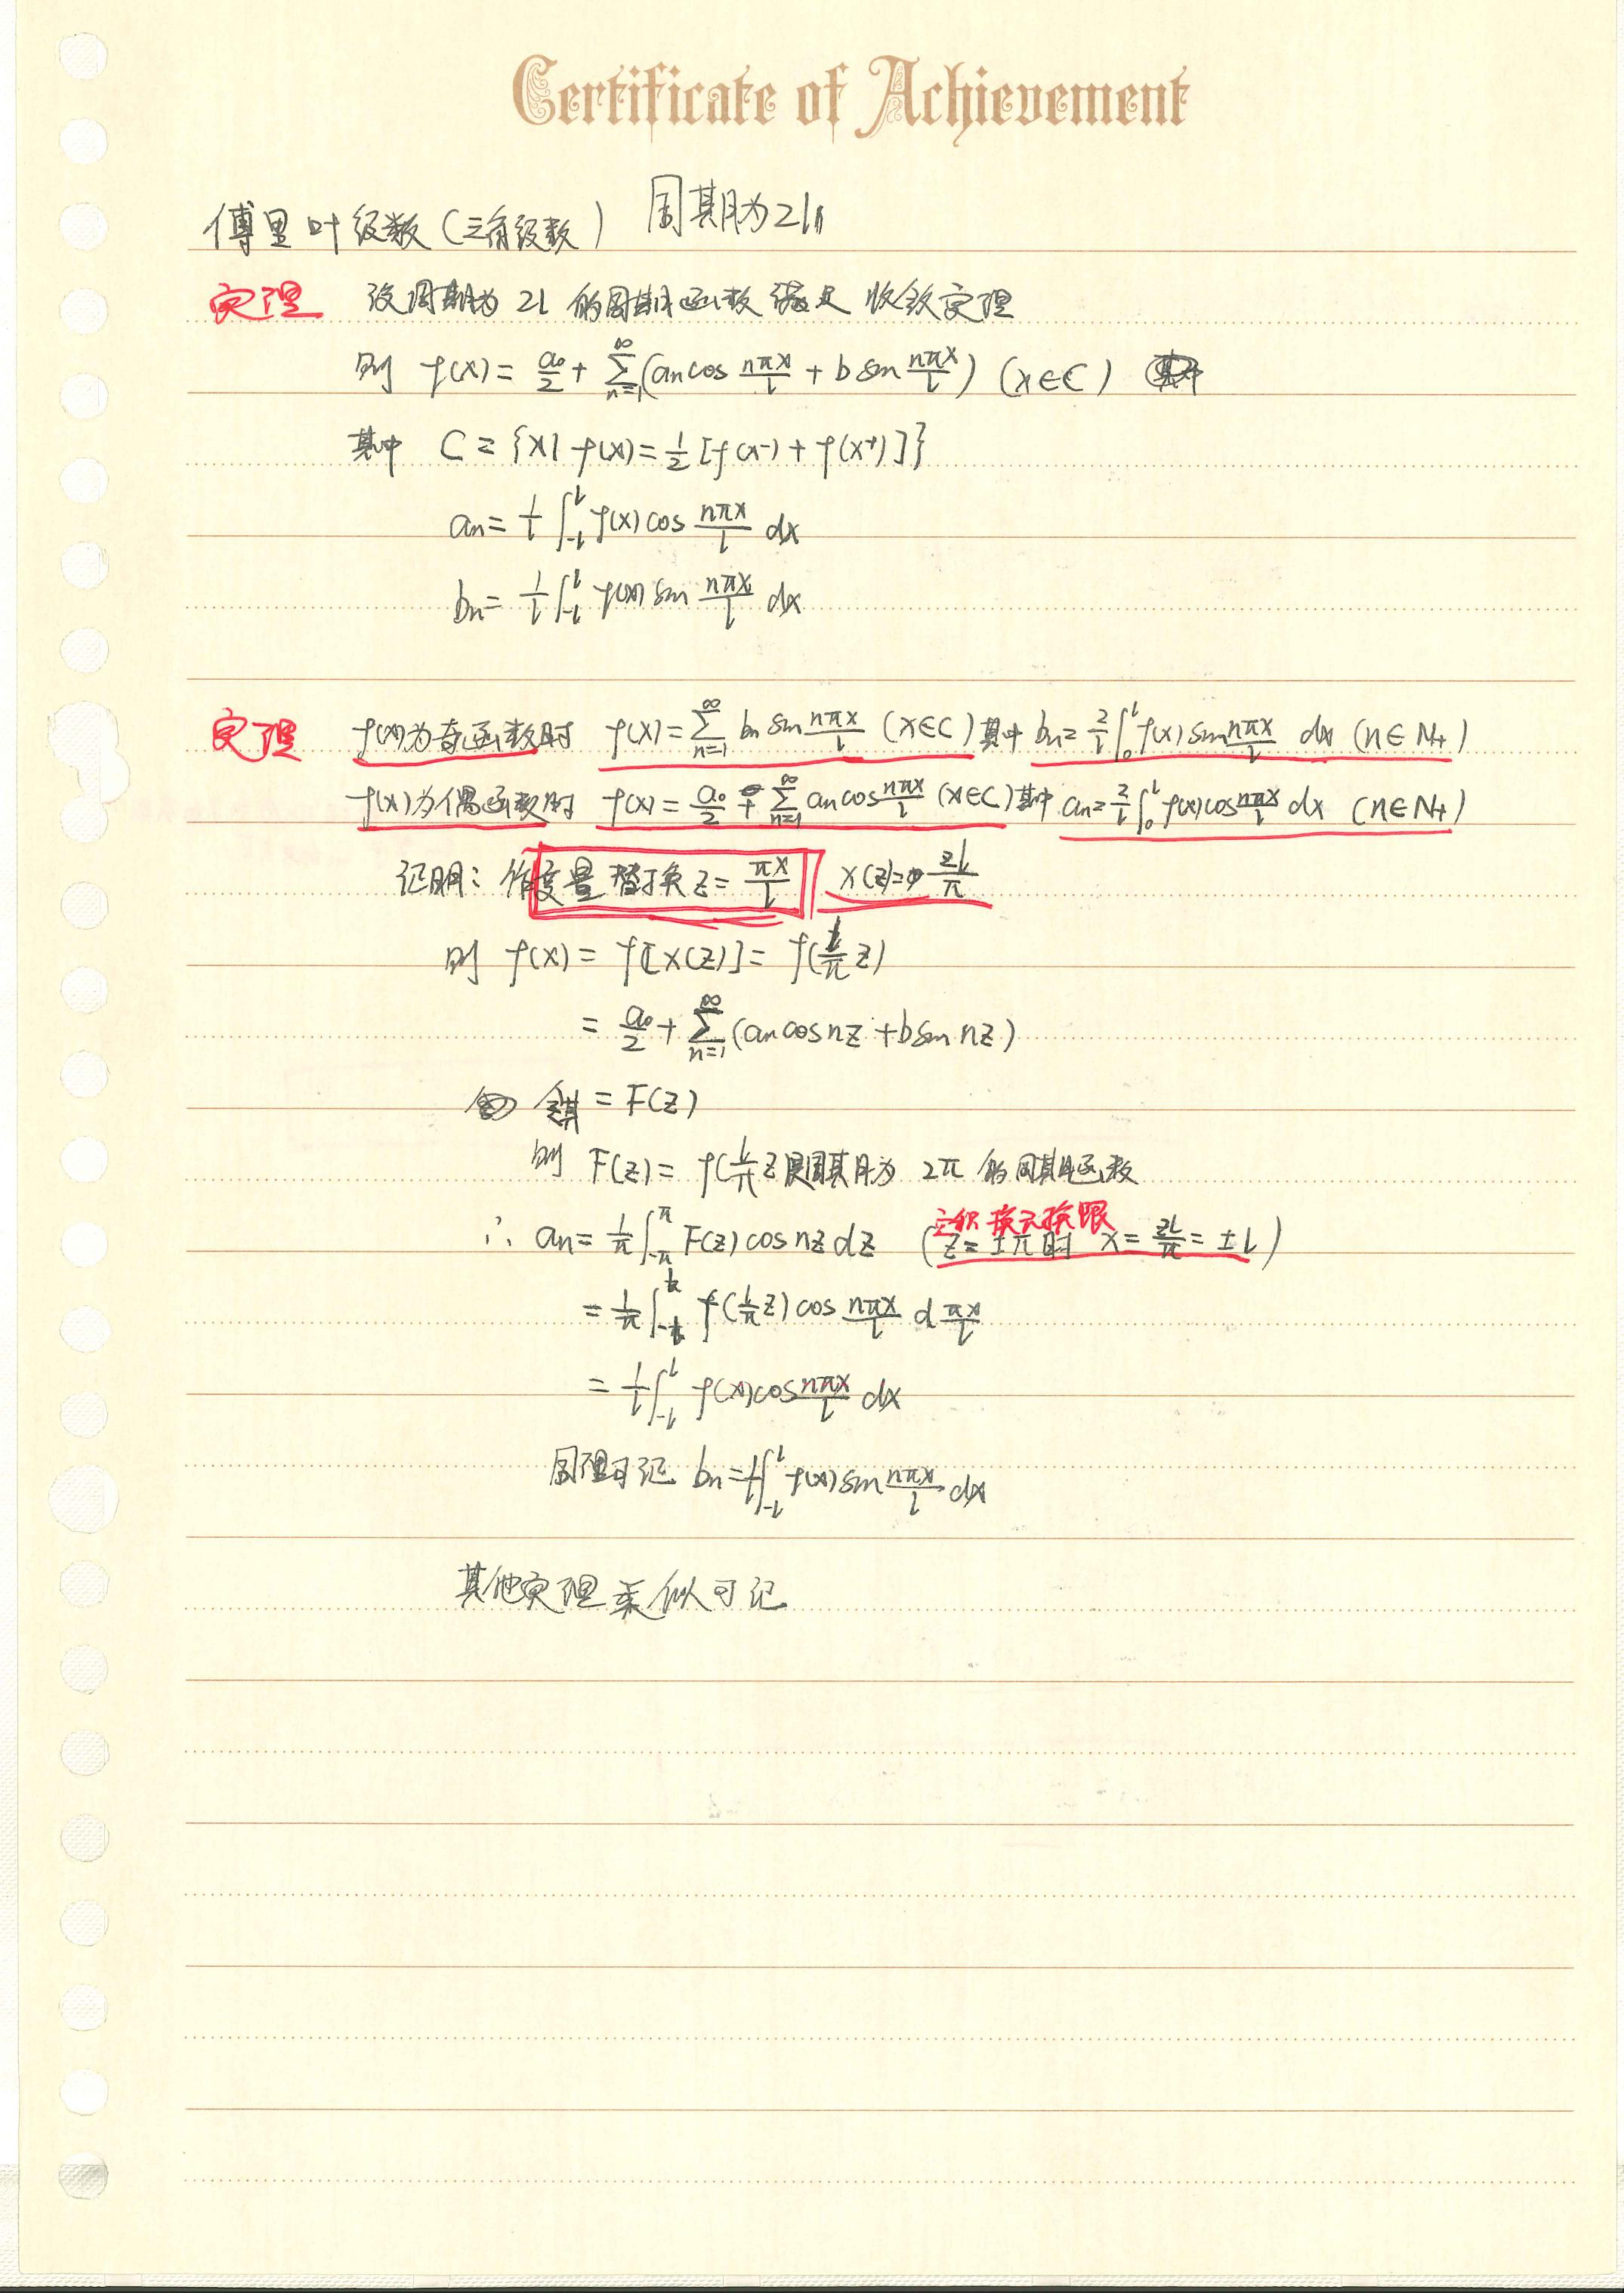 Certificate of Achievement
傅里叶级数(三角级数) 周期为2l
定理 设周期为 2l 的周期函数满足 收敛定理
则 f(x) = a₀/2 + ∑_{n=1}^{∞} (aₙ cos nπx/l + b sin nπx/l) (x∈C)
其中 C = {x| f(x) = 1/2 [f(x⁻) + f(x⁺)]}
aₙ = 1/l ∫_{-l}^{l} f(x) cos nπx/l dx
bₙ = 1/l ∫_{-l}^{l} f(x) sin nπx/l dx
定理 f(x)为奇函数时 f(x) = ∑_{n=1}^{∞} bₙ sin nπx/l (x∈C) 其中 bₙ = 2/l ∫_{0}^{l} f(x) sin nπx/l dx (n∈N₊)
f(x)为偶函数时 f(x) = a₀/2 + ∑_{n=1}^{∞} aₙ cos nπx/l (x∈C) 其中 aₙ = 2/l ∫_{0}^{l} f(x) cos nπx/l dx (n∈N₊)
证明: 作变量替换 z = πx/l x(z) = zl/π
则 f(x) = f[x(z)] = f(l/π z)
= a₀/2 + ∑_{n=1}^{∞} (aₙ cos nz + b sin nz)
令其 = F(z)
则 F(z) = f(l/π z 是周期为 2π 的周期函数
∴ aₙ = 1/π ∫_{-π}^{π} F(z) cos nz dz (z = ±π时 x = zl/π = ±l)
定积 换元换限
= 1/π ∫_{-l}^{l} f(l/π z) cos nπx/l d πx/l
= 1/l ∫_{-l}^{l} f(x) cos nπx/l dx
同理可证 bₙ = 1/l ∫_{-l}^{l} f(x) sin nπx/l dx
其他定理类似可证